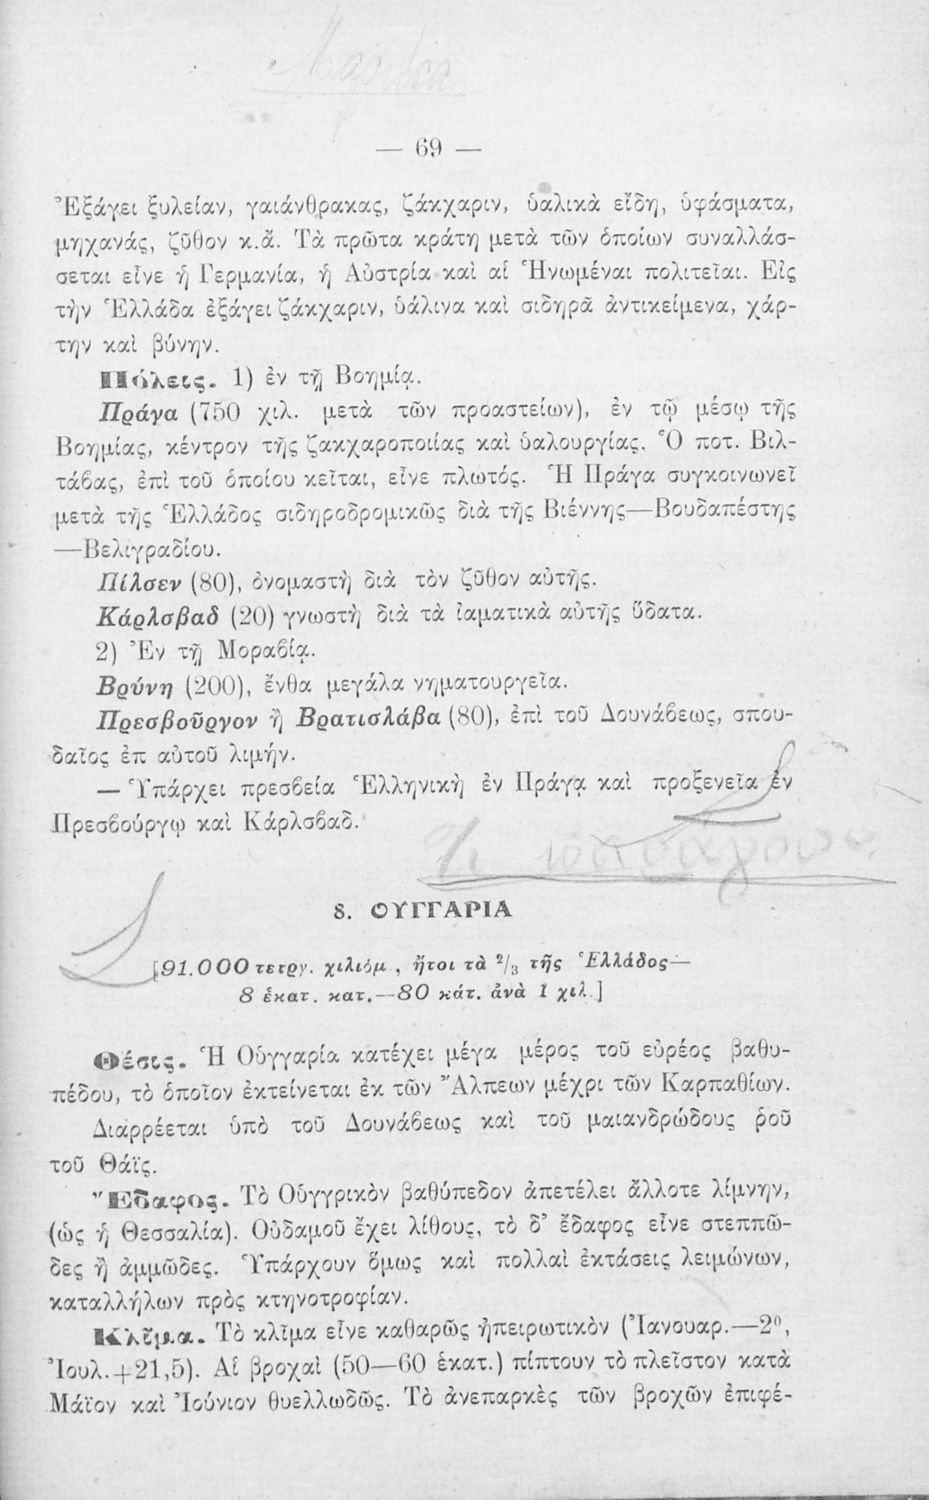 — 69 —
Ἐξάγει ξυλείαν, γαιάνθρακας, ζάκχαριν, ὑαλικὰ εἴδη, ὑφάσματα,
μηχανάς, ζῦθον κ.ἄ. Τὰ πρῶτα κράτη μετὰ τῶν ὁποίων συναλλάσ-
σεται εἶνε ἡ Γερμανία, ἡ Αὐστρία καὶ αἱ Ἡνωμέναι πολιτεῖαι. Εἰς
τὴν Ἑλλάδα ἐξάγει ζάκχαριν, ὑάλινα καὶ σιδηρᾶ ἀντικείμενα, χάρ-
την καὶ βύνην.
Πόλεις. 1) ἐν τῇ Βοημίᾳ.
Πράγα (750 χιλ. μετὰ τῶν προαστείων), ἐν τῷ μέσῳ τῆς
Βοημίας, κέντρον τῆς ζακχαροποιίας καὶ ὑαλουργίας. Ὁ ποτ. Βιλ-
τάβας, ἐπὶ τοῦ ὁποίου κεῖται, εἶνε πλωτός. Ἡ Πράγα συγκοινωνεῖ
μετὰ τῆς Ἑλλάδος σιδηροδρομικῶς διὰ τῆς Βιέννης—Βουδαπέστης
—Βελιγραδίου.
Πίλσεν (80), ὀνομαστὴ διὰ τὸν ζῦθον αὐτῆς.
Κάρλσβαδ (20) γνωστὴ διὰ τὰ ἰαματικὰ αὐτῆς ὕδατα.
2) Ἐν τῇ Μοραβίᾳ.
Βρύνη (200), ἔνθα μεγάλα νηματουργεῖα.
Πρεσβοῦργον ἢ Βρατισλάβα (80), ἐπὶ τοῦ Δουνάβεως, σπου-
δαῖος ἐπ αὐτοῦ λιμήν.
— Ὑπάρχει πρεσβεία Ἑλληνικὴ ἐν Πράγᾳ καὶ προξενεῖα ἐν
Πρεσβούργῳ καὶ Κάρλσβαδ.
8. ΟΥΓΓΑΡΙΑ
[91.000 τετργ. χιλιόμ, ἤτοι τὰ 2/3 τῆς Ἑλλάδος—
8 ἑκατ. κατ.—80 κάτ. ἀνὰ 1 χιλ.]
Θέσις. Ἡ Οὑγγαρία κατέχει μέγα μέρος τοῦ εὐρέος βαθυ-
πέδου, τὸ ὁποῖον ἐκτείνεται ἐκ τῶν Ἄλπεων μέχρι τῶν Καρπαθίων.
Διαρρέεται ὑπὸ τοῦ Δουνάβεως καὶ τοῦ μαιανδρώδους ῥοῦ
τοῦ Θάϊς.
Ἔδαφος. Τὸ Οὑγγρικὸν βαθύπεδον ἀπετέλει ἄλλοτε λίμνην,
(ὡς ἡ Θεσσαλία). Οὐδαμοῦ ἔχει λίθους, τὸ δ' ἔδαφος εἶνε στεππῶ-
δες ἢ ἀμμῶδες. Ὑπάρχουν ὅμως καὶ πολλαὶ ἐκτάσεις λειμώνων,
καταλλήλων πρὸς κτηνοτροφίαν.
Κλῖμα. Τὸ κλῖμα εἶνε καθαρῶς ἠπειρωτικὸν (Ἰανουαρ.—2⁰,
Ἰουλ.+21,5). Αἱ βροχαὶ (50—60 ἑκατ.) πίπτουν τὸ πλεῖστον κατὰ
Μάϊον καὶ Ἰούνιον θυελλωδῶς. Τὸ ἀνεπαρκὲς τῶν βροχῶν ἐπιφέ-